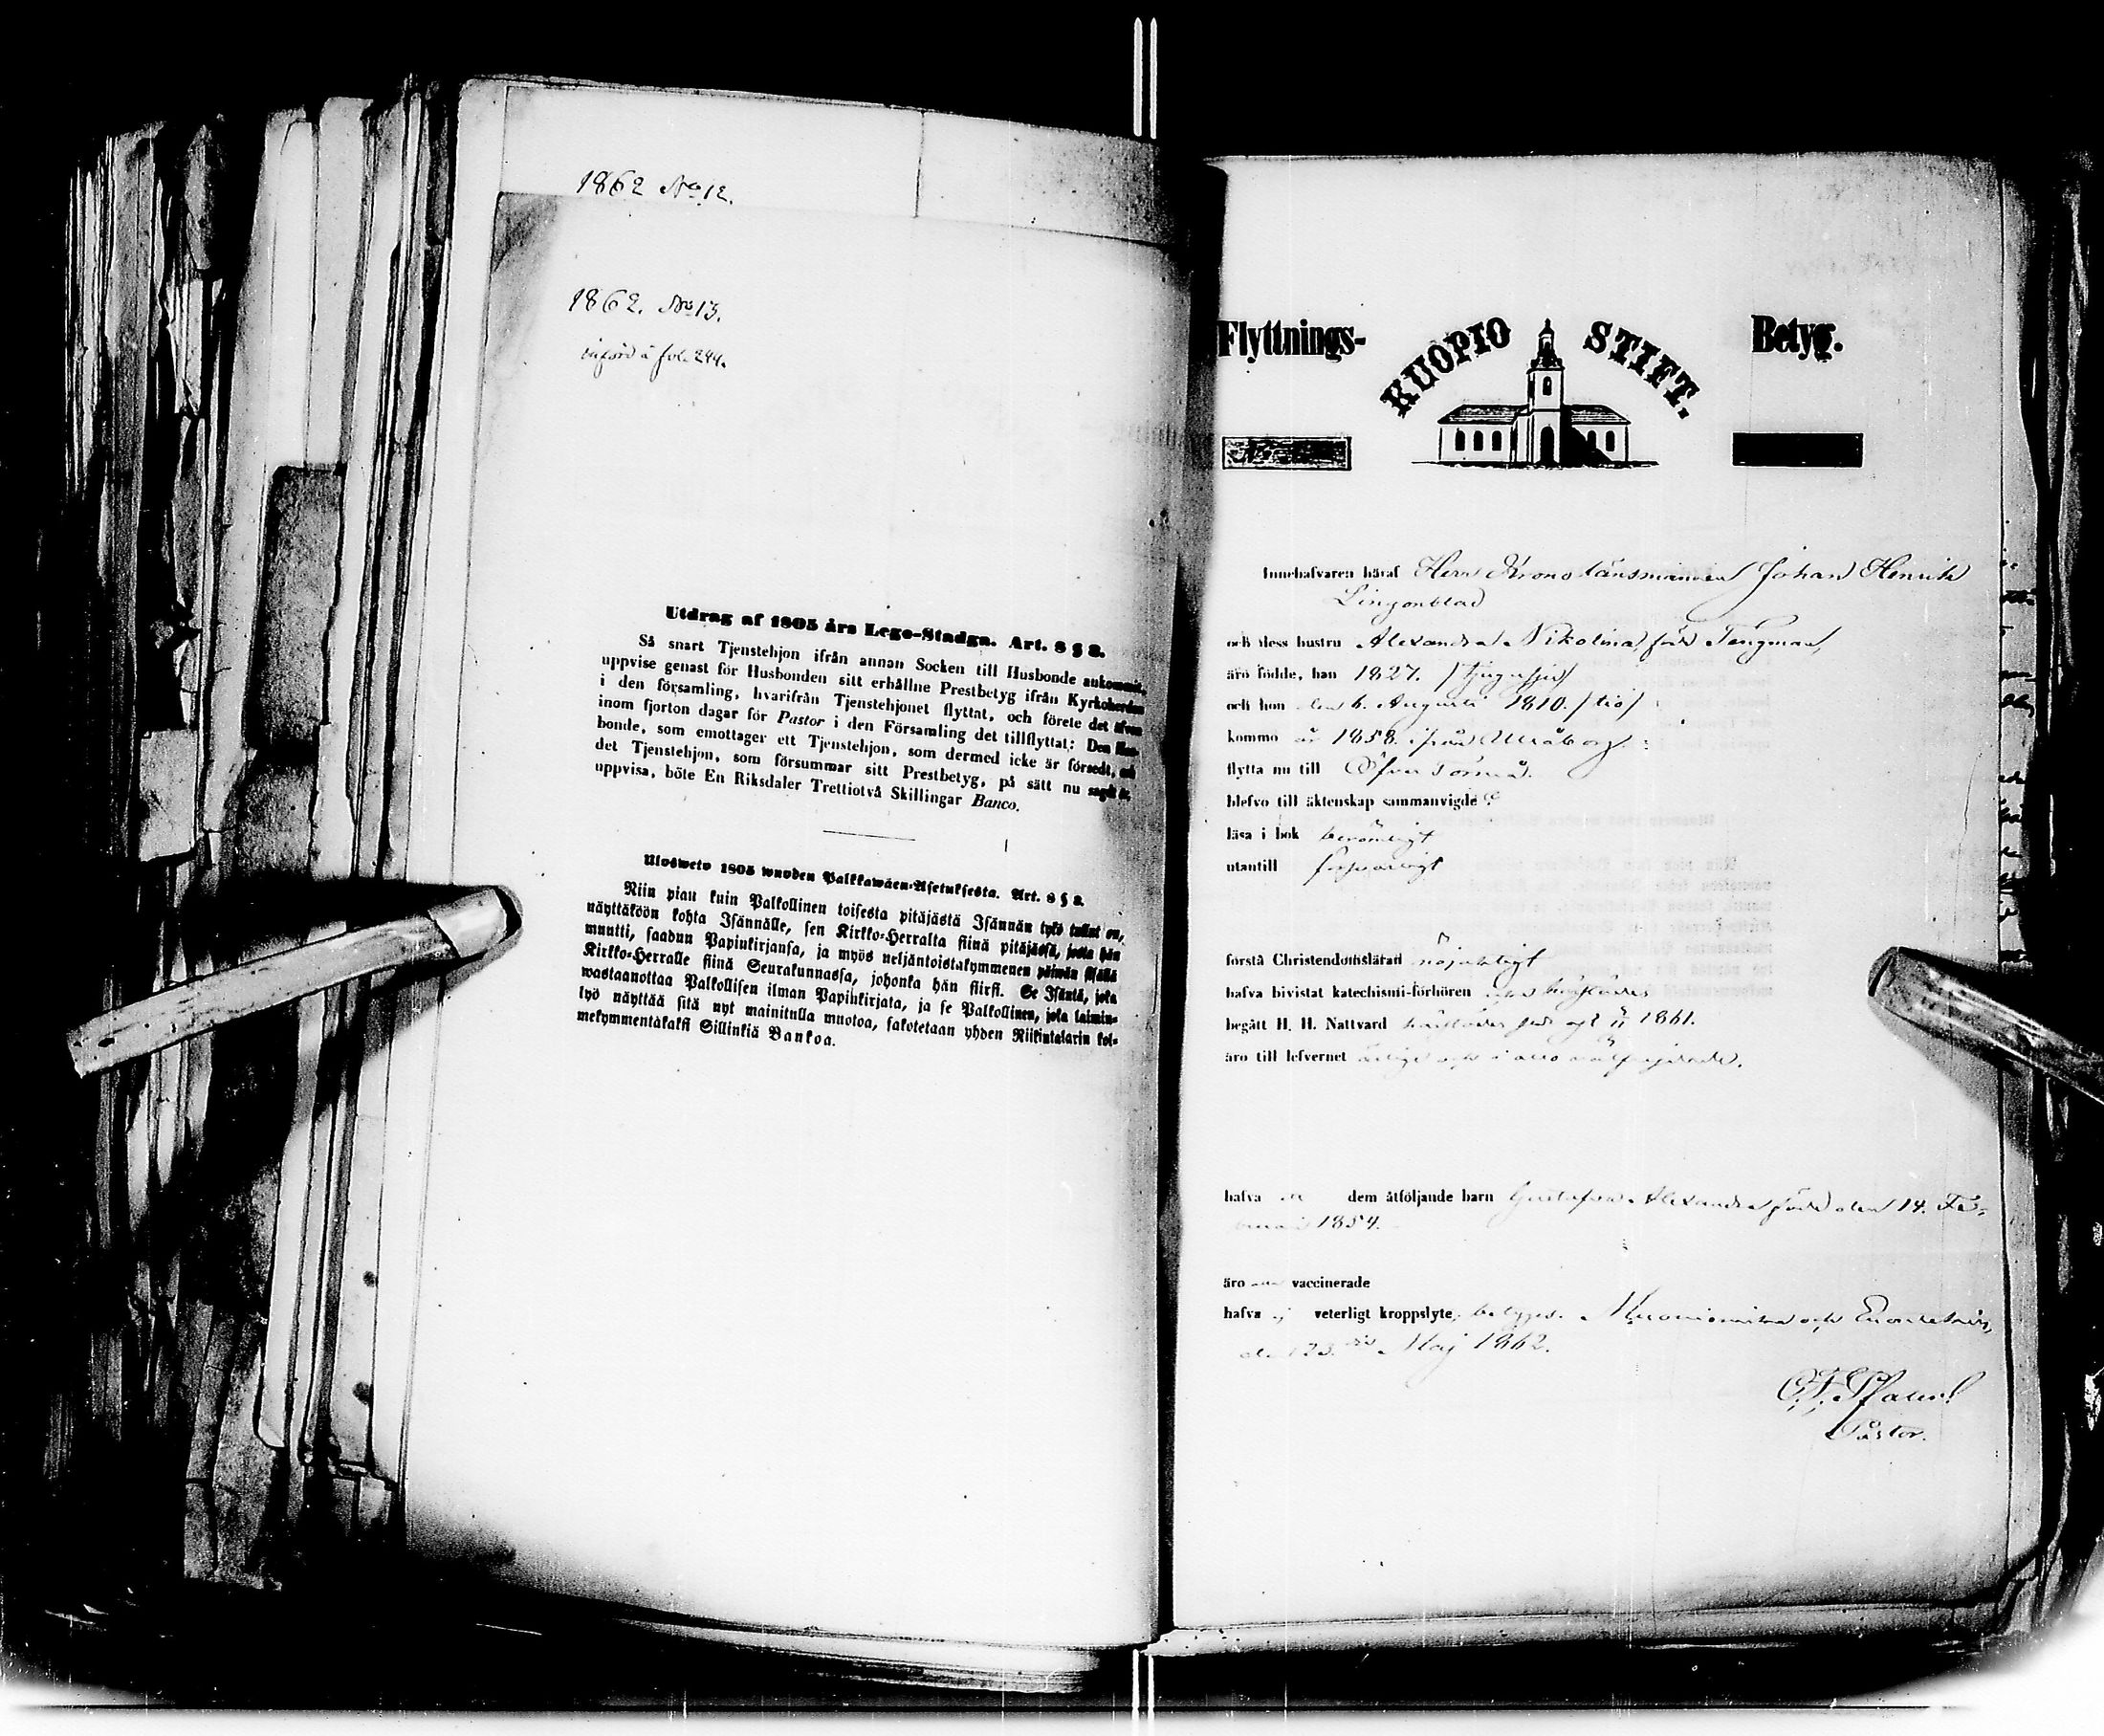 1862 No 12.
1862. No 13.
införd å fol. 244.
Utdrag af 1805 års Lego-Stadga. Art. 8 § 8.
Så snart Tjenstehjon ifrån annan Socken till Husbonde ankommit,
uppvise genast för Husbonden sitt erhållne Prestbetyg ifrån Kyrkoherden
i den församling, hvarifrån Tjenstehjonet flyttat, och förete det äfven
inom fjorton dagar för Pastor i den Församling det tillflyttat: Den Hus-
bonde, som emottager ett Tjenstehjon, som dermed icke är försedt, och
det Tjenstehjon, som försummar sitt Prestbetyg, på sätt nu sagdt är
uppvisa, böte En Riksdaler Trettiotvå Skillingar Banco.
Ulosweto 1805 wuoden Palkkawäen-Asetuksesta. Art. 8 § 8.
Niin pian kuin Palkollinen toisesta pitäjästä Isännän tykö tullut on,
näyttäköön kohta Isännälle, sen Kirkko-Herralta siinä pitäjässä, josta hän
muutti, saadun Papinkirjansa, ja myös neljäntoistakymmenen päiwän sisällä
Kirkko-Herralle siinä Seurakunnassa, johonka hän siirsi. Se Isäntä, joka
wastaanottaa Palkollisen ilman Papinkirjata, ja se Palkollinen, joka laimin-
lyö näyttää sitä nyt mainitulla muotoa, sakotetaan yhden Riikintalarin kol-
mekymmentäkaksi Sillinkiä Bankoa.
Flyttnings- KUOPIO STIFT. Betyg.
Innehafvaren häraf Herr Kronolänsmannen Johan Henrik
Lingonblad
och dess hustru Alexandra Nikolina född Tengman,
äro födde, han 1827. /tjugusju/
och hon den 6. Augusti 1810. /tio/
kommo år 1858. ifrån Uleåborg.
flytta nu till Öfver Torneå.
blefvo till äktenskap sammanvigde
läsa i bok berömligt
utantill försvarligt
förstå Christendomsläran nöjaktigt
hafva bivistat katechismi-förhören
begått H. H. Nattvard 1861.
äro till lefvernet ärlige och i allo välfrejdade.
hafva dem åtföljande barn Gustafva Alexandra född den 14. Fe-
bruari 1854.
äro vaccinerade
hafva ej veterligt kroppslyte, betygas. Muonioniska och Enontekis,
den 23. Maj 1862.
Pastor.